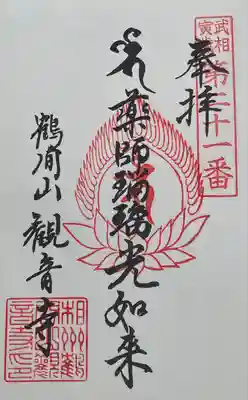 武相
寅歳
第二十一番
奉拝
薬師瑠璃光如来
鶴間山観音寺